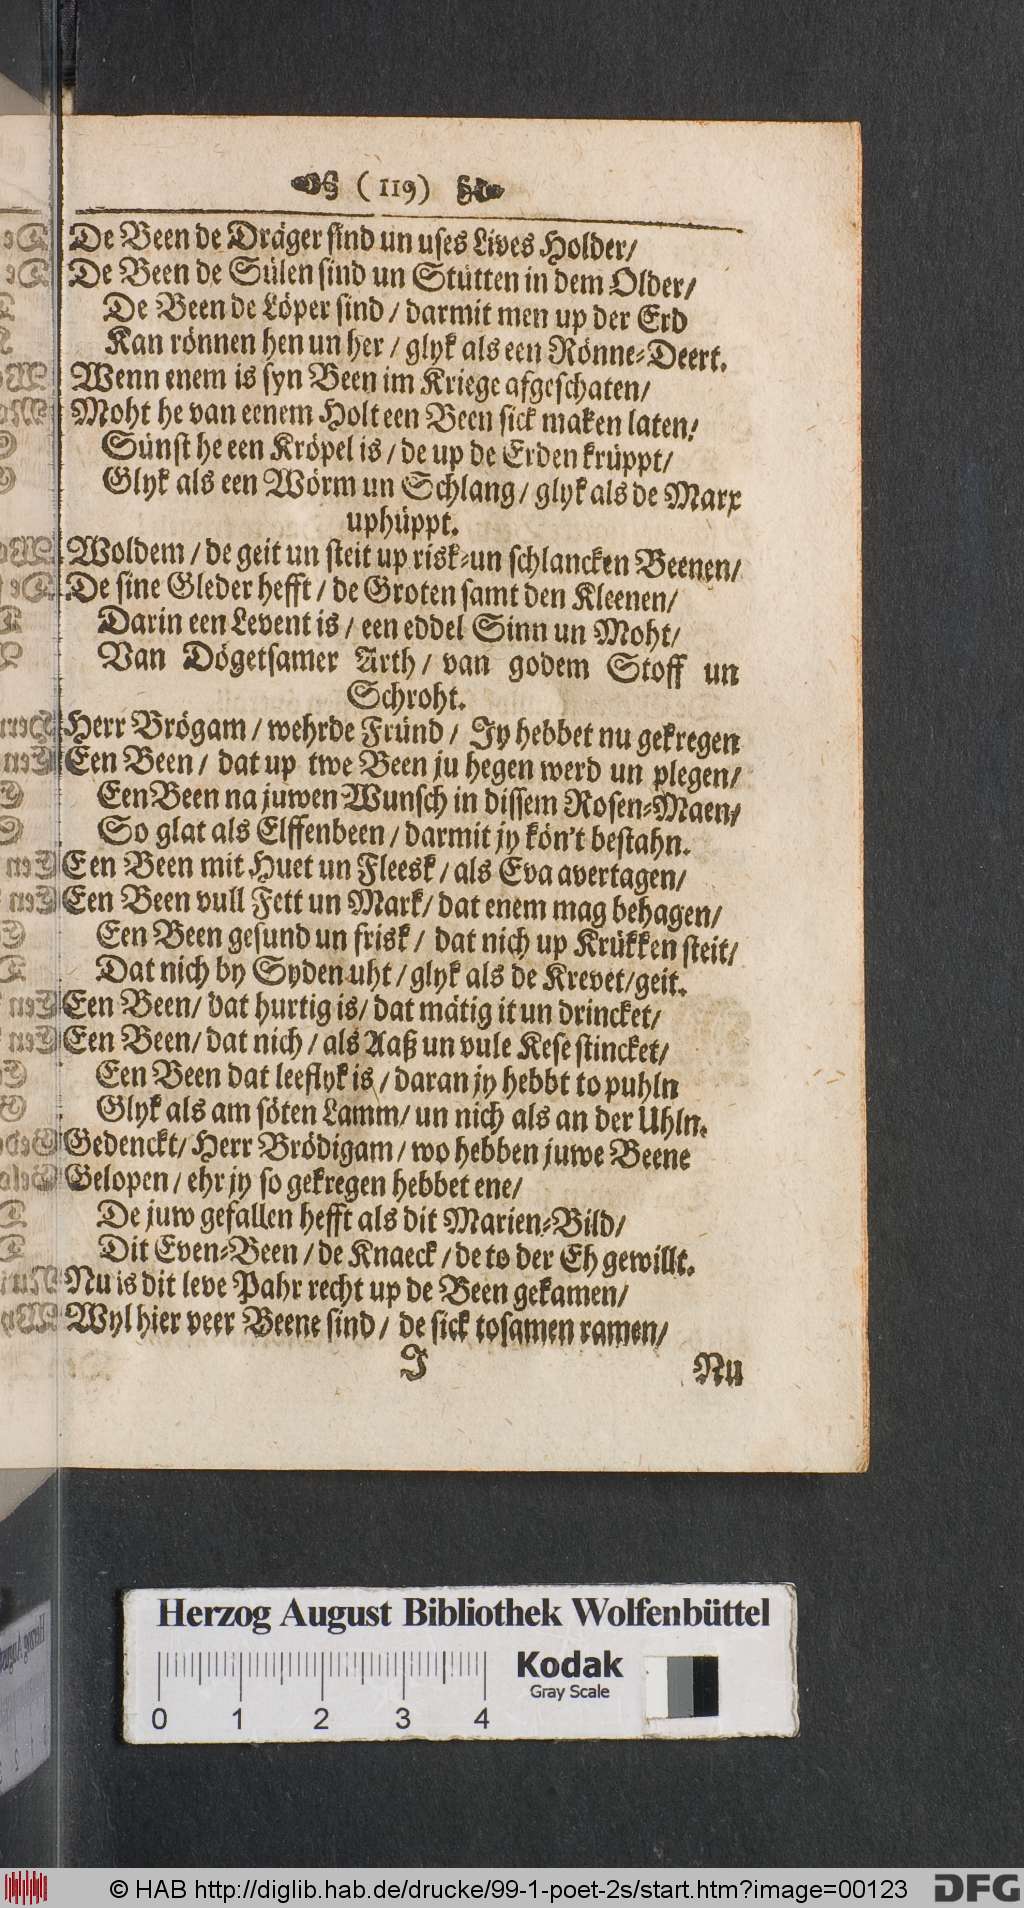 (119)
De Been de Dräger sind un uses Lives Holder/
De Been de Sülen sind un Stütten in dem Older/
De Been de Löper sind / darmit men up der Erd
Kan rönnen hen un her / glyk als een Rönne-Deert.
Wenn enem is syn Been im Kriege afgeschaten/
Moht he van eenem Holt een Been sick maken laten/
Sünst he een Kröpel is / de up de Erden krüppt/
Glyk als een Wörm un Schlang / glyk als de Marx
uphüppt.
Woldem / de geit un steit up risk-un schlancken Beenen/
De sine Gleder hefft / de Groten samt den Kleenen/
Darin een Levent is / een eddel Sinn un Moht/
Van Dögetsamer Arth / van godem Stoff un
Schroht.
Herr Brögam / wehrde Fründ / Jy hebbet nu gekregen
Een Been / dat up twe Been ju hegen werd un plegen/
Een Been na juwen Wunsch in dissem Rosen-Maen/
So glat als Elffenbeen / darmit jy kön't bestahn.
Een Been mit Huet un Fleesk / als Eva avertagen/
Een Been vull Fett un Mark / dat enem mag behagen/
Een Been gesund un frisk / dat nich up Krükken steit/
Dat nich by Syden uht / glyk als de Krevet/geit.
Een Been / dat hurtig is / dat mätig it un drincket/
Een Been / dat nich / als Aaß un vule Kese stincket/
Een Been dat leeflyk is / daran jy hebbt to puhln
Glyk als am söten Lamm / un nich als an der Uhln.
Gedenckt / Herr Brödigam / wo hebben juwe Beene
Gelopen / ehr jy so gekregen hebbet ene/
De juw gefallen hefft als dit Marien-Bild/
Dit Even-Been / de Knaeck / de to der Eh gewillt.
Nu is dit leve Pahr recht up de Been gekamen/
Wyl hier veer Beene sind / de sick tosamen ramen/
J
Nu
Herzog August Bibliothek Wolfenbüttel
Kodak
Gray Scale
0 1 2 3 4
© HAB http://diglib.hab.de/drucke/99-1-poet-2s/start.htm?image=00123
DFG